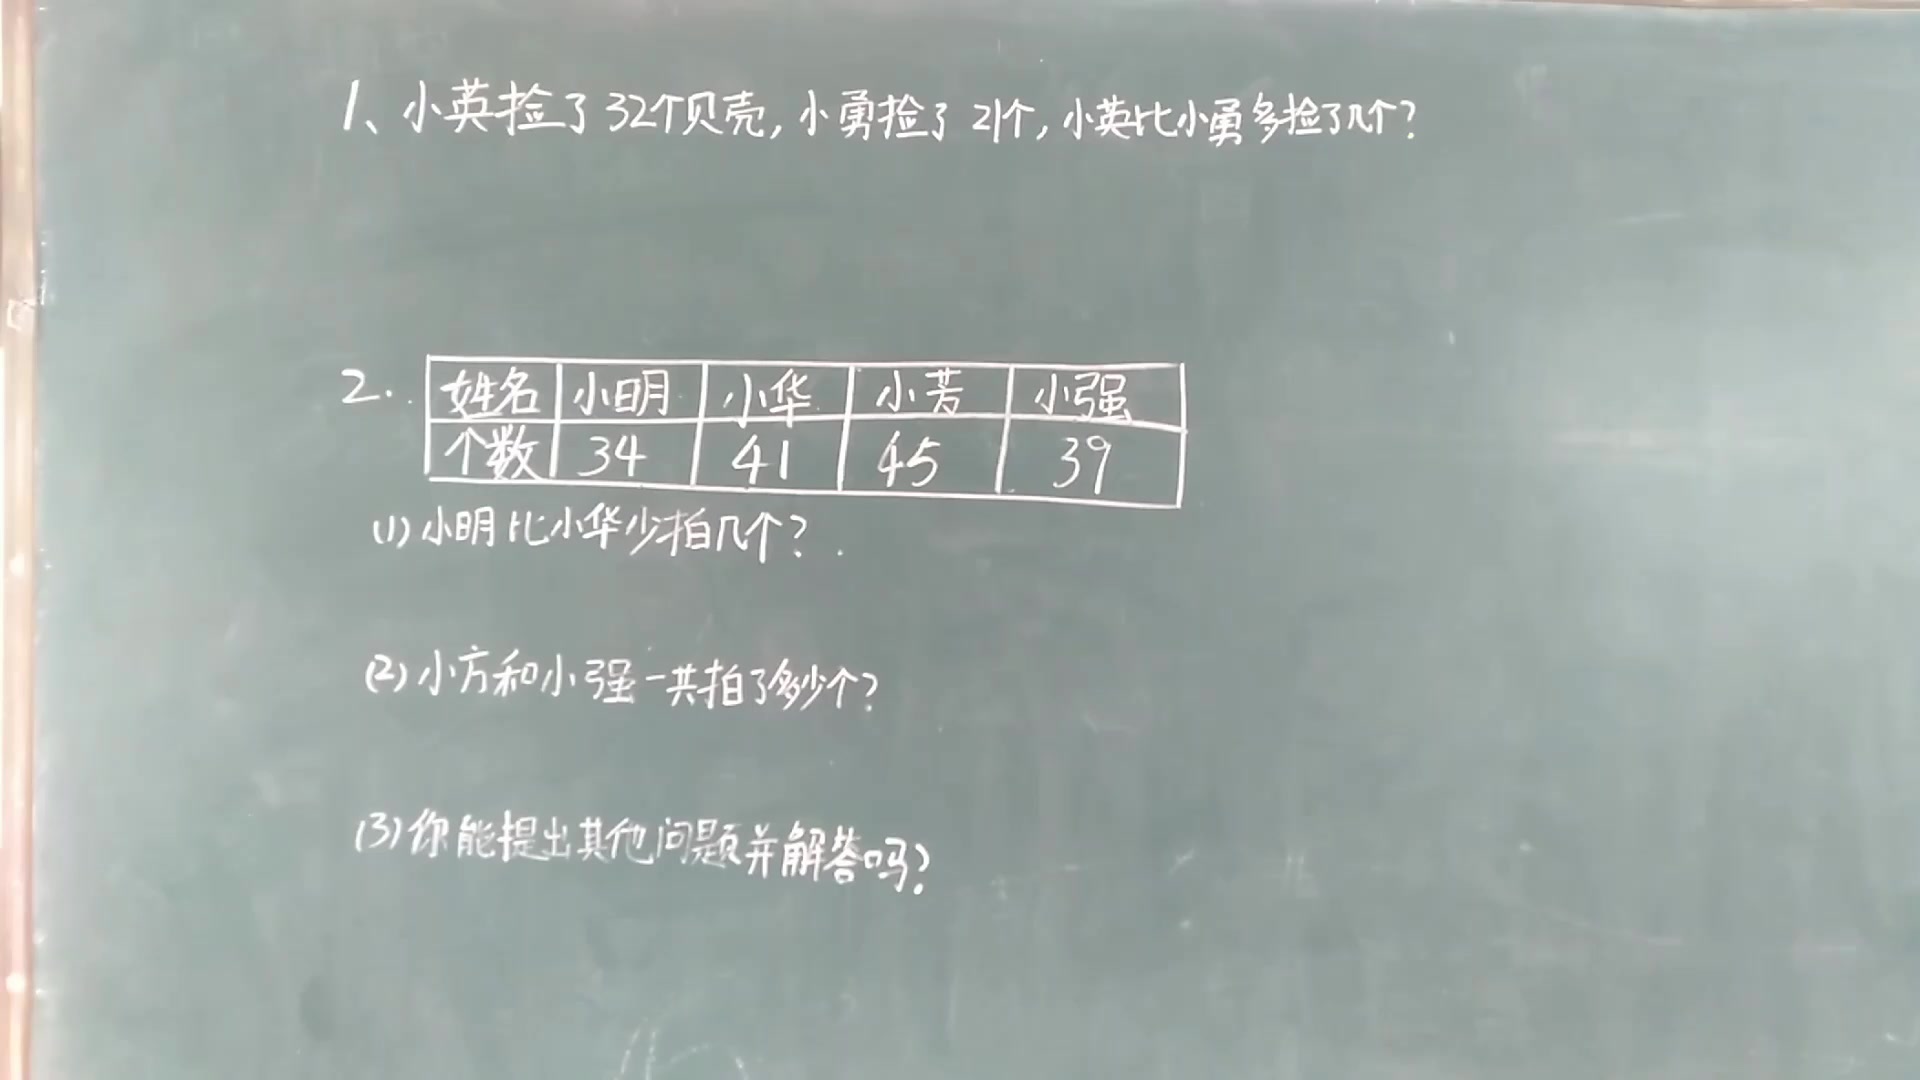 1、小英捡了32个贝壳,小勇捡了21个,小英比小勇多捡了几个?
2. 姓名 小明 小华 小芳 小强
个数 34 41 45 39
(1)小明比小华少拍几个?
(2)小方和小强一共拍了多少个?
(3)你能提出其他问题并解答吗?